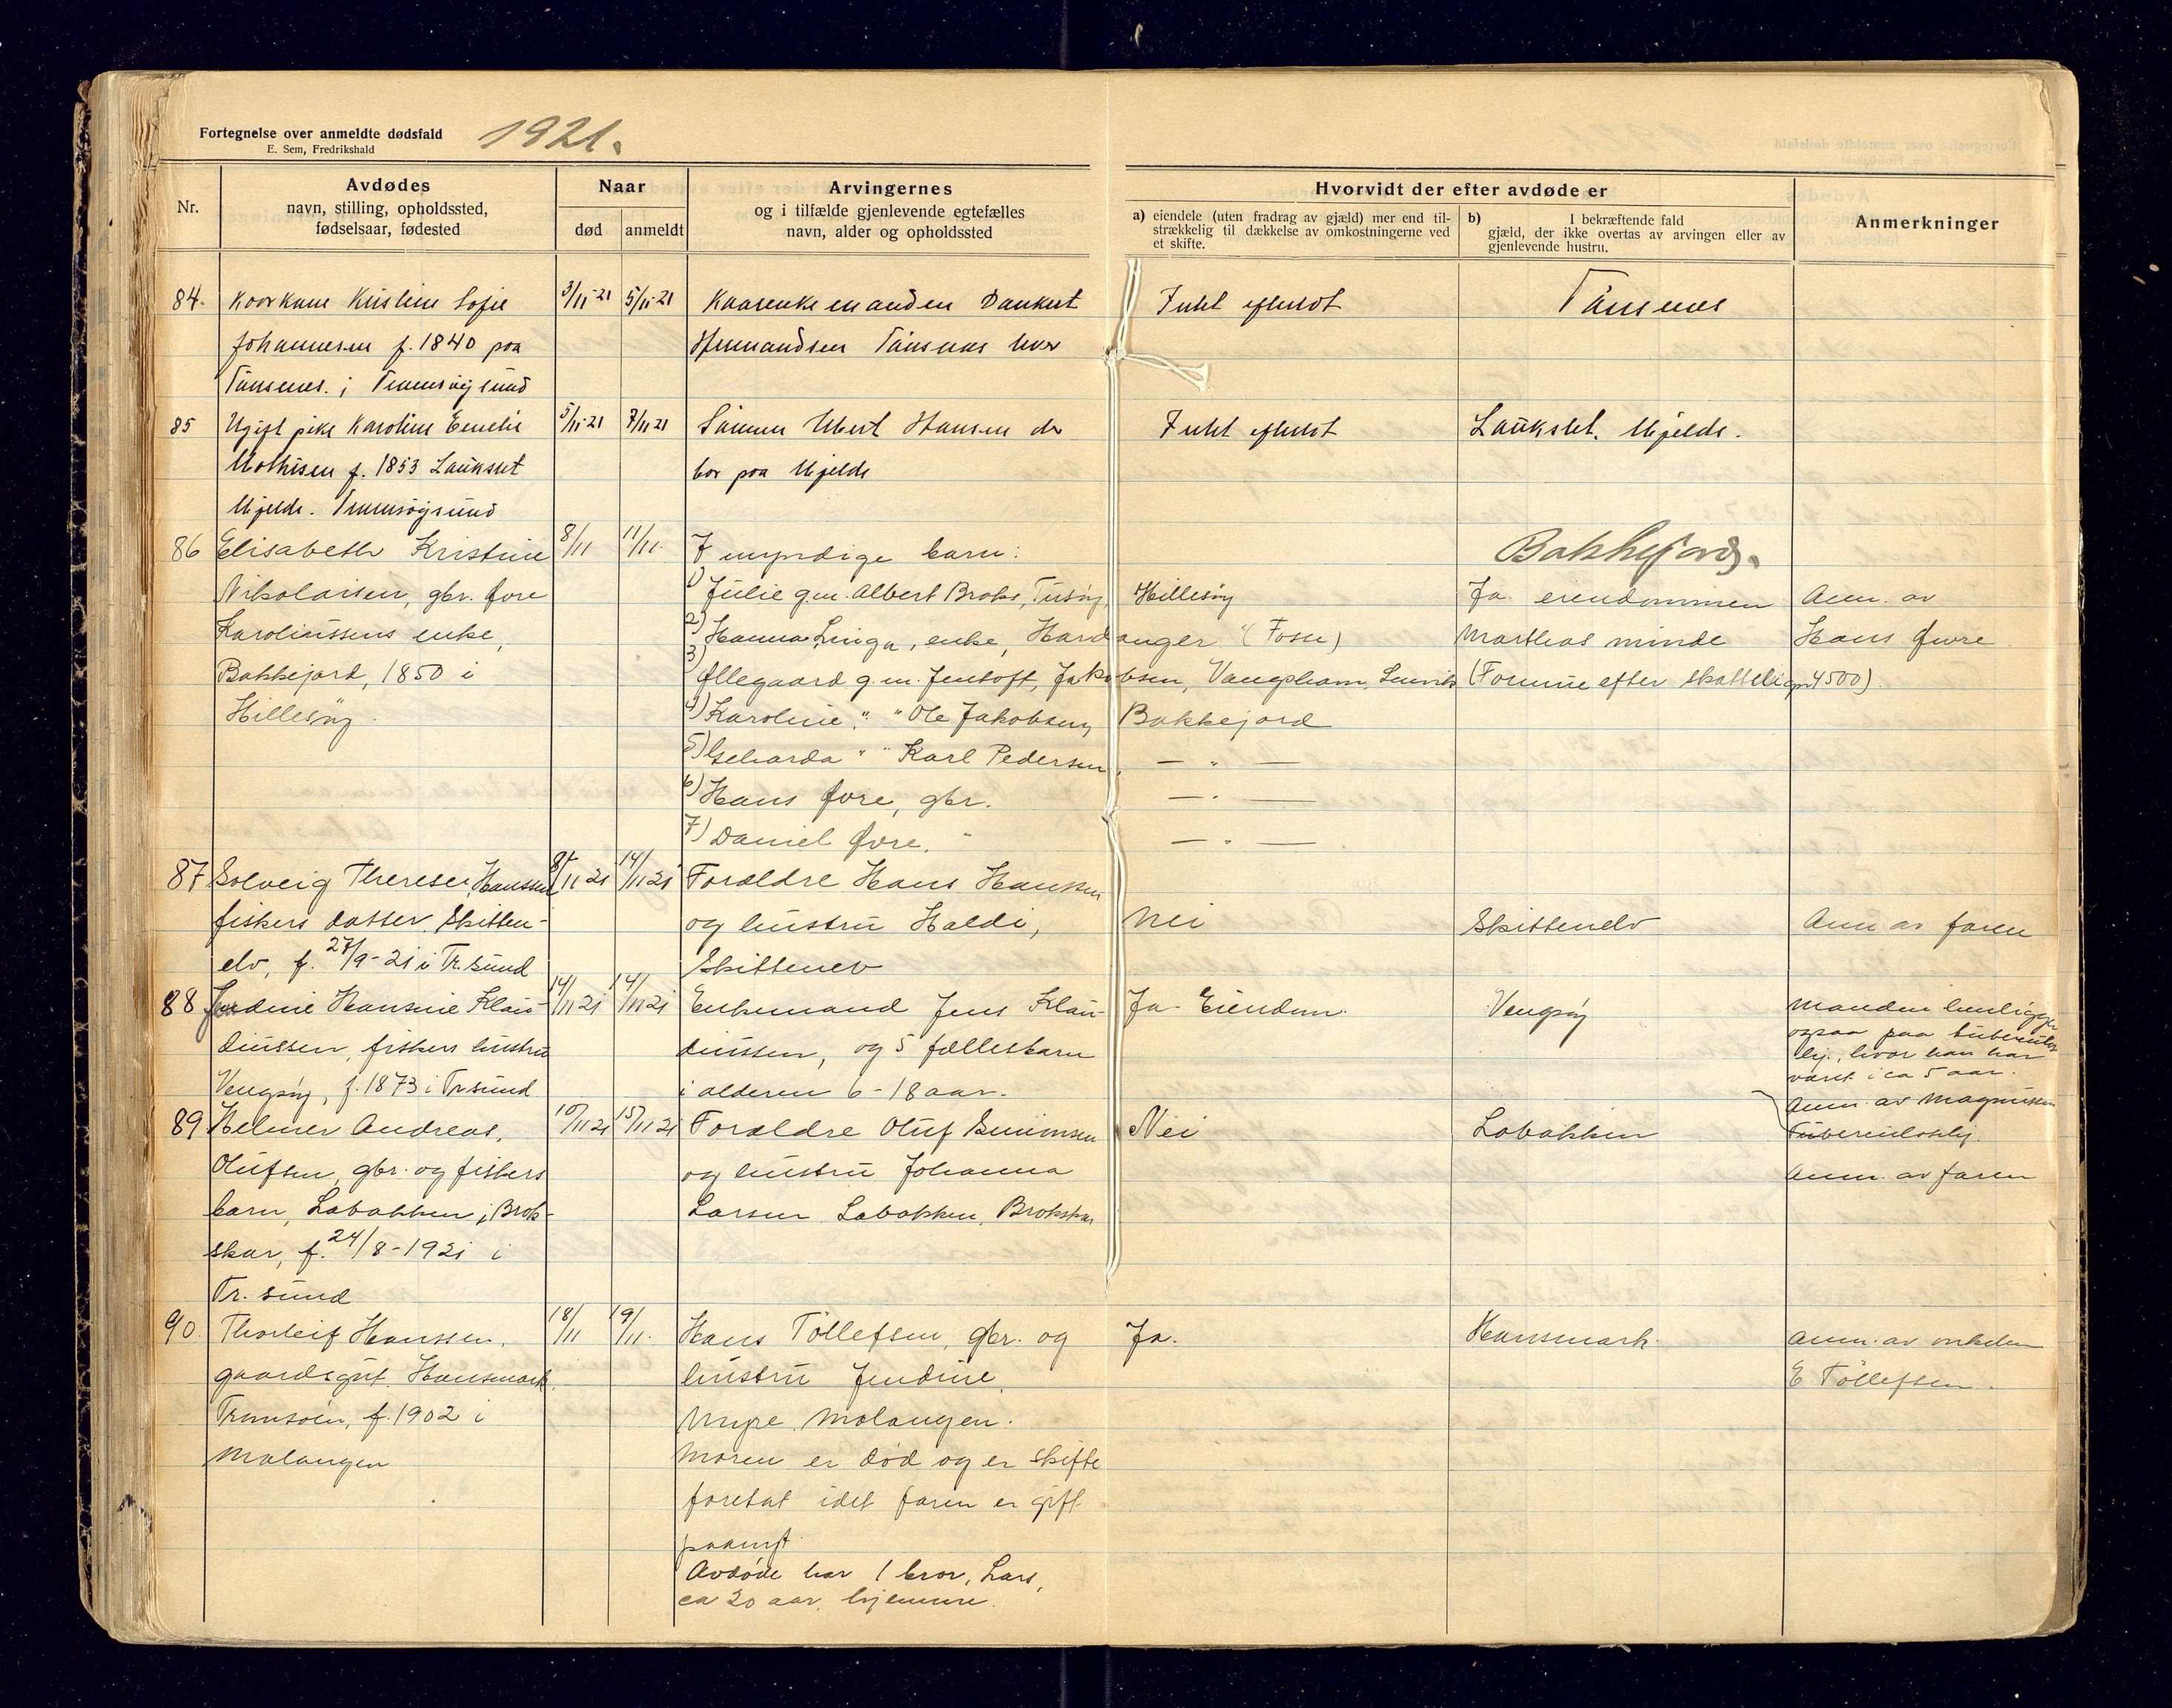 Fortegnelse over anmeldte dødsfald
E. Sem, Fredrikshald
1921.
Nr.
Avdødes
navn, stilling, opholdssted,
fødselsaar, fødested
Naar
død
anmeldt
Arvingernes
og i tilfælde gjenlevende egtefælles
navn, alder og opholdssted
Hvorvidt der efter avdøde er
a) eiendele (uten fradrag av gjæld) mer end til-
strækkelig til dækkelse av omkostningerne ved
et skifte.
b) I bekræftende fald
gjæld, der ikke overtas av arvingen eller av
gjenlevende hustru.
Anmerkninger
84. Kristine Sofie
Johannesen f. 1840 paa
i Tromsøysund
3/11-21
5/11-21
Dankert
Intet efterlatt
85 Ugift pike Karoline Emelie
Mathisen f. 1853 Laukslet
Mjelde. Tromsøysund
5/11-21
7/11 21
Hansen der
bor paa Mjelde
Intet efterlatt
Laukslet. Mjelde.
86 Elisabeth Kristine
Nikolaisen, gbr. Øvre
Karolinssens enke,
Bakkejord, 1850 i
Hillesøy.
8/11
11/11.
7 myndige barn:
1) Julie g.m. Albert Broks, Tusøy, Hillesøy
2) Hanna Linga, enke, Hardanger (Fosse)
3) Ellegaard g.m. Jentoft Jakobsen, Vangshavn, Lenvik
4) Karoline " " Ole Jakobsen, Bakkejord
5) Gerharda " " Karl Pedersen, — " —
6) Hans Øvre, gbr. — " —
7) Daniel Øvre. " — " —
Bakkejord.
Ja. eiendommen
Marthas minde
(Formue efter skattelign 4500).
Anm. av
Hans Øvre.
87 Solveig Therese Hanssen
fiskers datter, Skitten-
elv, f. 27/9-21 i Tr.sund
8/11 21
14/11 21
Forældre Hans Hanssen
og hustru Haldi,
Skittenelv
Nei
Skittenelv
Anm av faren
88 Hansine Klau-
diussen, fiskers hustru
Vengsøy, f. 1873 i Tr.sund
14/11 21
14/11 21
Enkemand Jens Klau-
diussen, og 5 fællesbarn
i alderen 6-18 aar.
Ja. Eiendom.
Vengsøy
Manden henligger
ogsaa paa tuberkulos
hj., hvor han har
været i ca 5 aar.
Anm. av Magnussen
Tuberculosehj.
89 Helmer Andreas,
Olufsen, gbr. og fiskers
barn, Labakken, Brok-
skar, f. 24/8-1921 i
Tr. sund
10/11 21
15/11 21
Forældre Oluf Simonsen
og hustru Johanna
Larsen Labakken, Brokskar
Nei
Labakken
Anm. av faren
90. Thorleif Hanssen,
gaardsgut, Hansmark
Tromsøen, f. 1902 i
Malangen
18/11
19/11.
Hans Tollefsen, gbr. og
hustru Jendine,
Myre, Malangen.
Moren er død og er skifte
foretat idet faren er gift
paanyt.
Avdøde har 1 bror, Lars,
ca 20 aar, hjemme.
Ja.
Hansmark.
Anm. av onkelen
E. Tollefsen.